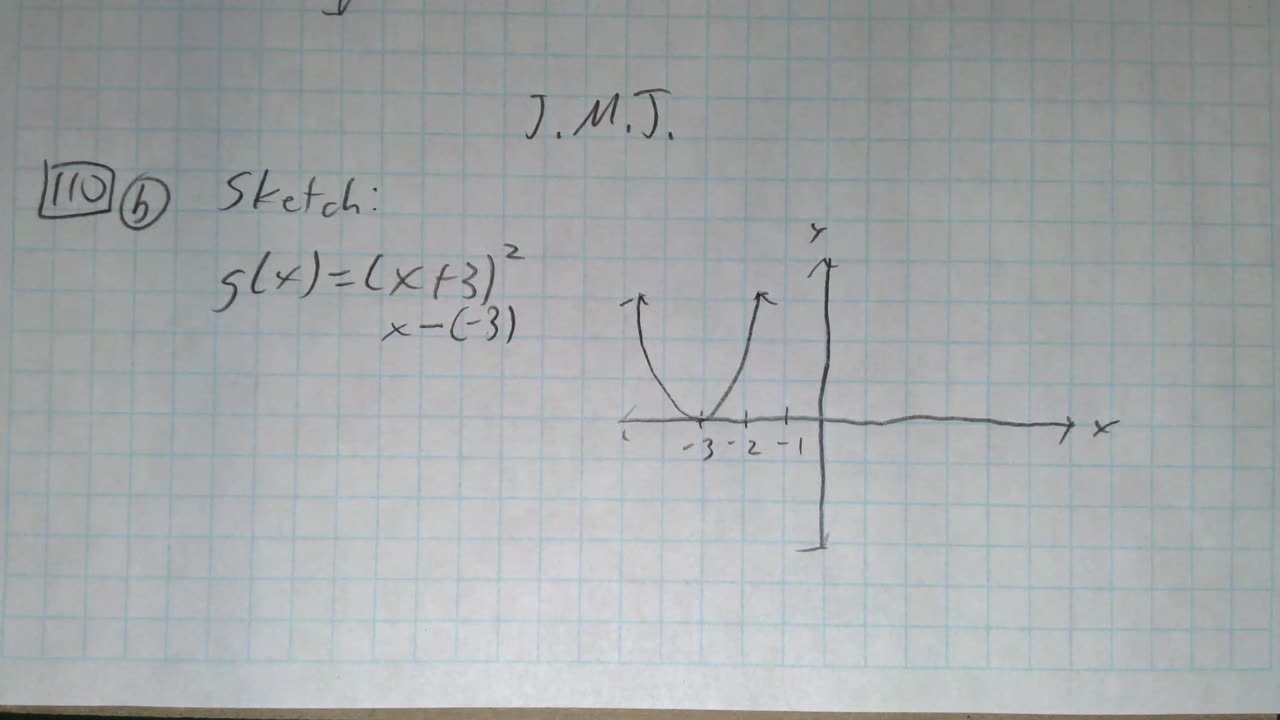 J.M.J.
110 b Sketch:
g(x)=(x+3)²
x-(-3)
Y
-3 -2 -1
x